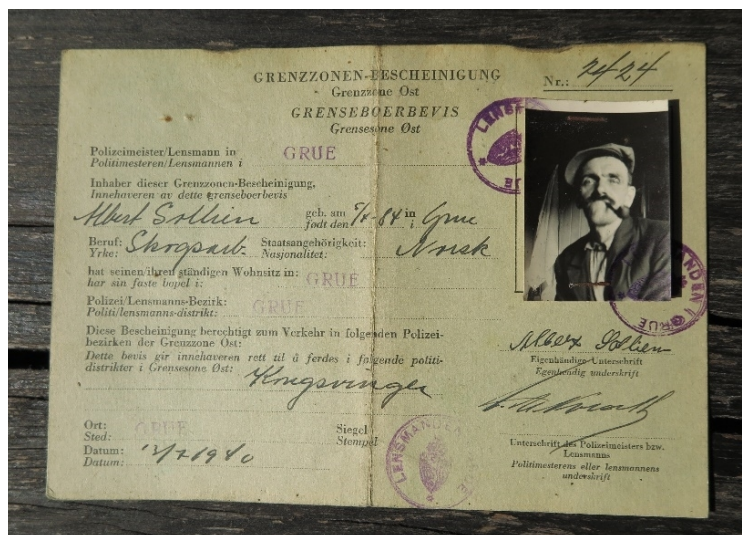 GRENZZONEN-BESCHEINIGUNG
Grenzzone Ost
GRENSEBOERBEVIS
Grensesone Øst
Nr.: 2424
Polizeimeister/Lensmann in
Politimesteren/Lensmannen i
GRUE
Inhaber dieser Grenzzonen-Bescheinigung,
Innehaveren av dette grenseboerbevis
Albert Sollien geb. am 7/4-84 in Grue
født den i
Beruf: Skogsarb. Staatsangehörigkeit: Norsk
Yrke: Nasjonalitet:
hat seinen/ihren ständigen Wohnsitz in:
har sin faste bopel i:
GRUE
Polizei/Lensmanns-Bezirk:
Politi/lensmanns-distrikt:
GRUE
Diese Bescheinigung berechtigt zum Verkehr in folgenden Polizei-
bezirken der Grenzzone Ost:
Dette bevis gir innehaveren rett til å ferdes i følgende politi-
distrikter i Grensesone Øst:
Kongsvinger
Ort:
Sted:
GRUE
Siegel
Stempel
Datum:
Datum:
1940
LENSMANDEN
LENSMANDEN I GRUE
Albert Sollien
Eigenhändige Unterschrift
Egenhendig underskrift
Unterschrift des Polizeimeisters bzw.
Lensmanns
Politimesterens eller lensmannens
underskrift